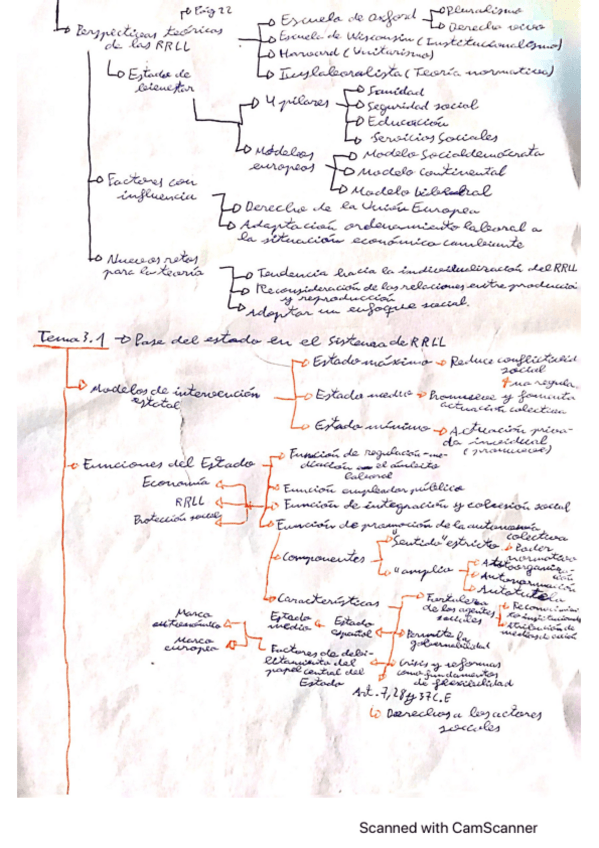 Pág 22
Perspectivas teóricas
de las RRLL
Escuela de Oxford
Pluralismo
Derecho vivo
Escuela de Wisconsin (Institucionalismo)
Harvard (Unitarismo)
Iuslaboralista (Teoría normativa)
Estado de
bienestar
4 pilares
Sanidad
Seguridad social
Educación
Servicios Sociales
Modelos
europeos
Modelo Socialdemócrata
Modelo continental
Modelo liberal
Factores con
influencia
Derecho de la Unión Europea
Adaptación ordenamiento laboral a
la situación económica cambiante
Nuevos retos
para la teoría
Tendencia hacia la individualización del RRLL
Reconsideración de las relaciones entre producción
y reproducción
Adoptar un enfoque social.
Tema 3.1 del estado en el sistema de RRLL
Modelos de intervención
estatal
Estado máximo
Reduce conflictividad
social
Estado medio
Promueve y fomenta
actuación colectiva
Estado mínimo
Actuación priva-
da individual
Funciones del Estado
Economía
RRLL
Protección social
Función de regulación
el ámbito
laboral
Función empleador público
Función de integración y cohesión social
Función de promoción de la autonomía
colectiva
Componentes
"Sentido" estricto
Poder
normativo
" amplio
Autoorganiza-
ción
Autonormación
Autotutela
Características
Estado
español
Estado
medio
Fortaleza
de los agentes
sociales
Permite la
gobernabilidad
Crisis y reformas
como fundamentos
de flexibilidad
Factores de debi-
litamiento del
papel central del
Estado
Marco
autonómico
Marco
europeo
Art. 7, 28 y 37 C.E
Derechos a los actores
sociales
Scanned with CamScanner